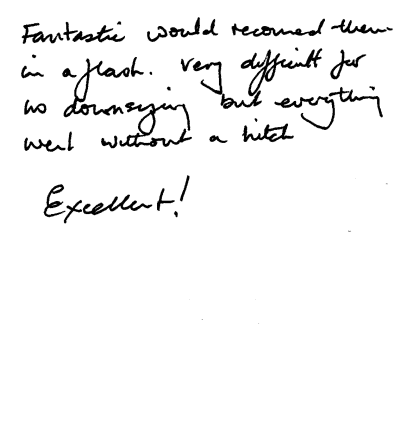 Fantastic would recomend them
in a flash. Very difficult for
us downsizing but everything
went without a hitch
Excellent!